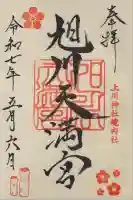 奉拝
上川神社境内社
旭川天満宮
令和七年
五月六日